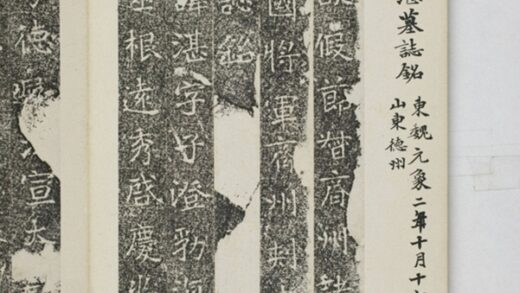 墓誌銘
東魏元象二年十月十
山東德州
假節督齊州諸
國將軍齊州刾
誌銘
諱湛字子澄勃海
根遠秀啓慶
德遙流宣大